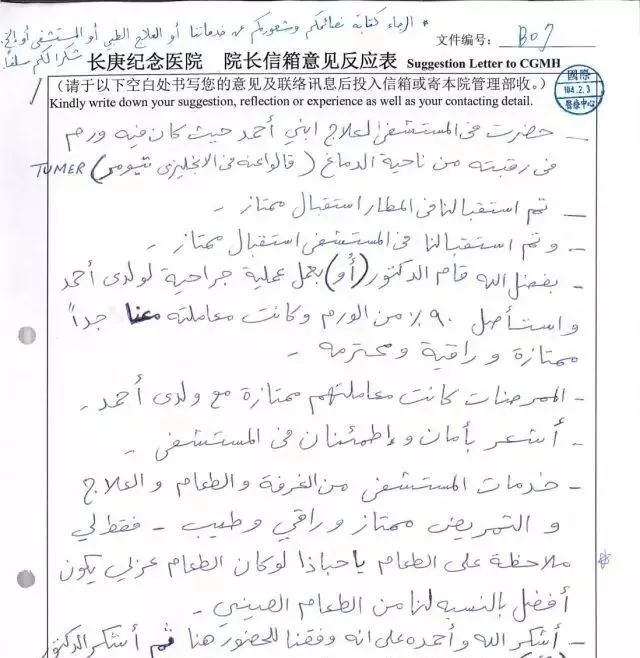 * الرجاء كتابة نصائحكم وشعوركم عن خدماتنا أو العلاج الطبي أو المستشفى أو
شكرا لكم سلفاً
文件编号: B07
长庚纪念医院 院长信箱意见反应表 Suggestion Letter to CGMH
(请于以下空白处书写您的意见及联络讯息后投入信箱或寄本院管理部收。)
Kindly write down your suggestion, reflection or experience as well as your contacting detail.
國際
104.2.3
醫療中心
_ حضرت فى المستشفى لعلاج ابني أحمد حيث كان فيه ورم
فى رقبته من ناحية الدماغ (قالوا عنه فى الانجليزى تيومر) TUMER
_ تم استقبالنا فى المطار استقبال ممتاز -
- وتم استقبالنا فى المستشفى استقبال ممتاز -
- بفضل الله قام الدكتور (أو) بعمل عملية جراحية لولدى أحمد
واستأصل ٩٠٪ من الورم وكانت معاملته معنا جداً
ممتازة وراقية ومحترمه -
- الممرضات كانت معاملتهم ممتازة مع ولدى أحمد -
- أشعر بأمان وإطمئنان فى المستشفى -
- خدمات المستشفى من الغرفة والطعام والعلاج
و التمريض ممتاز وراقي وطيب - فقط لي
ملاحظة على الطعام ياحباذا لوكان الطعام عربي يكون
أفضل بالنسبه لنا من الطعام الصيني -
- أشكر الله وأحمده على انه وفقنا للحضور هنا ثم أشكر الدكتور